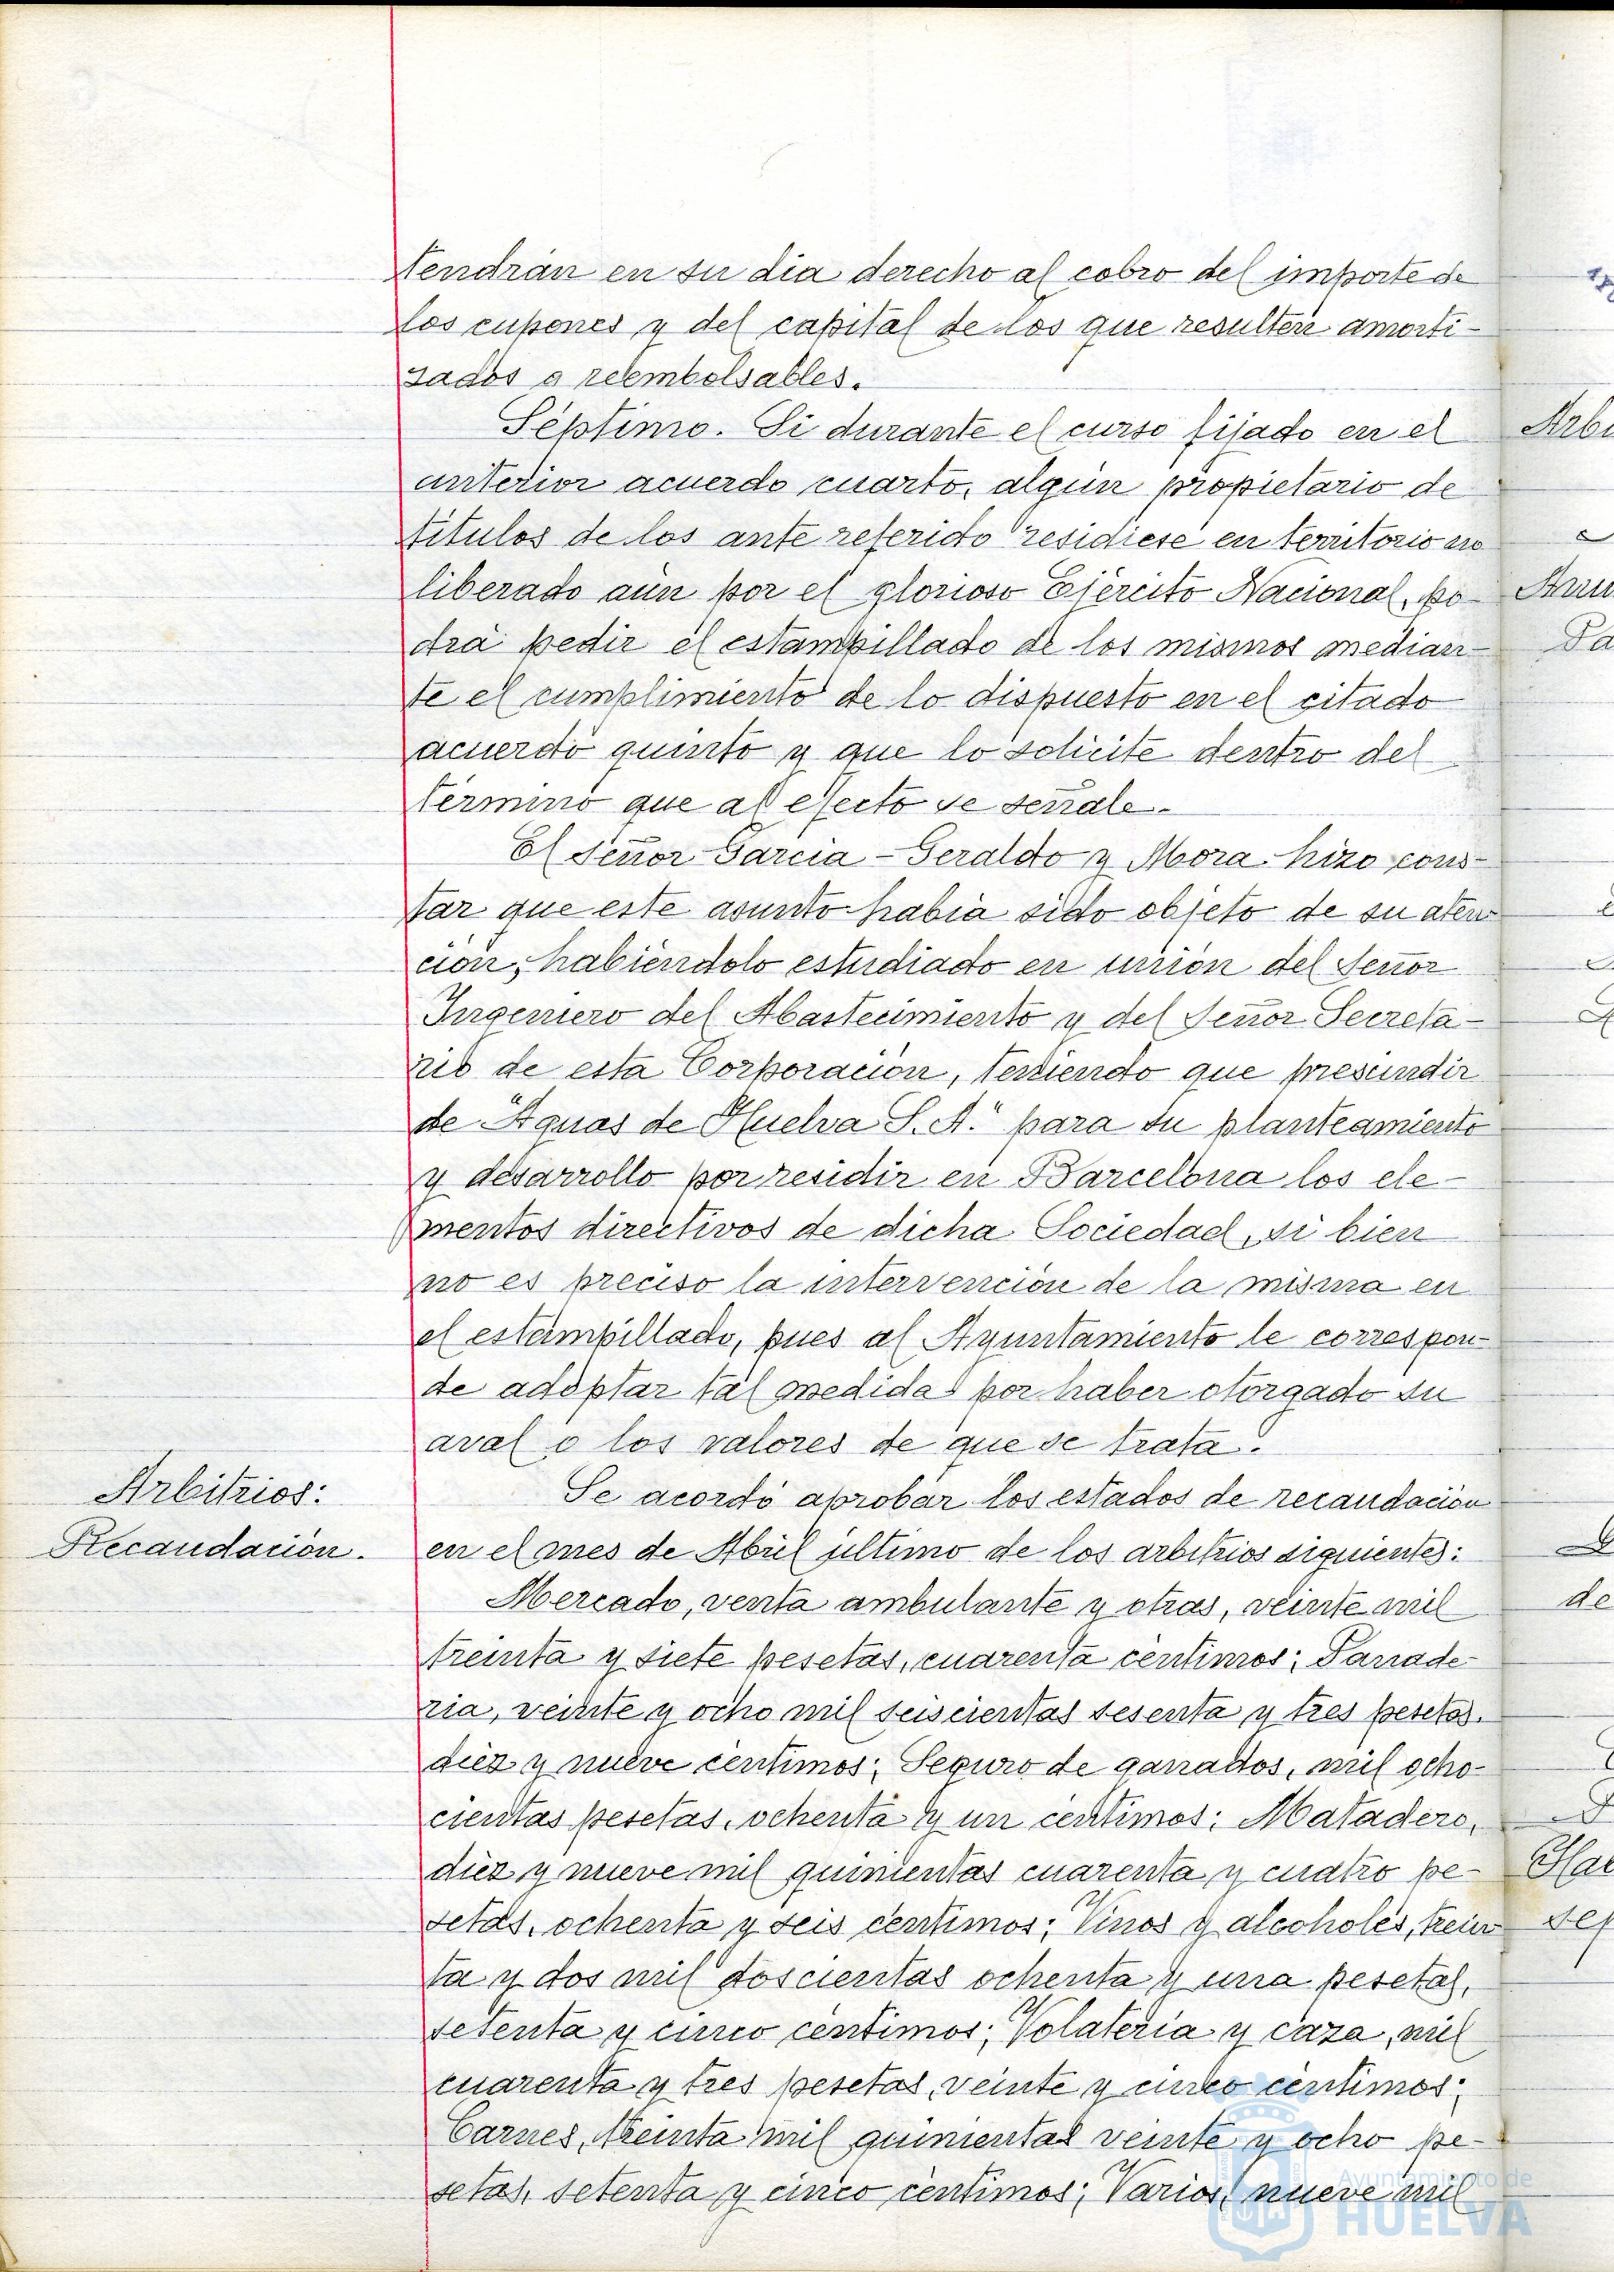 tendrán en su dia derecho al cobro del importe de
los cupones y del capital de los que resulten amorti-
zados o reembolsables.
Séptimo. Si durante el curso fijado en el
anterior acuerdo cuarto, algún propietario de
títulos de los ante referido residiese en territorio no
liberado aún por el glorioso Ejército Nacional, po-
drá pedir el estampillado de los mismos median-
te el cumplimiento de lo dispuesto en el citado
acuerdo quinto y que lo solicite dentro del
término que al efecto se señale.
El Señor Garcia-Geraldo y Mora hizo cons-
tar que este asunto habia sido objeto de su aten
ción, habiéndolo estudiado en unión del Señor
Ingeniero del Abastecimiento y del Señor Secreta-
rio de esta Corporación, teniendo que prescindir
de "Aguas de Huelva S.A." para su planteamiento
y desarrollo por residir en Barcelona los ele-
mentos directivos de dicha Sociedad, si bien
no es preciso la intervención de la misma en
el estampillado, pues al Ayuntamiento le correspon-
de adoptar tal medida por haber otorgado su
aval a los valores de que se trata.
Arbitrios:
Recaudación.
Se acordó aprobar los estados de recaudación
en el mes de Abril último de los arbitrios siguientes:
Mercado, venta ambulante y otras, veinte mil
treinta y siete pesetas, cuarenta centimos; Panade-
ria, veinte y ocho mil seiscientas sesenta y tres pesetas.
diez y nueve centimos; Seguro de ganados, mil ocho-
cientas pesetas, ochenta y un centimos; Matadero,
diez y nueve mil quinientas cuarenta y cuatro pe-
setas, ochenta y seis centimos; Vinos y alcoholes, trein
ta y dos mil doscientas ochenta y una pesetas,
setenta y cinco centimos; Volateria y caza, mil
cuarenta y tres pesetas, veinte y cinco centimos;
Carnes, treinta mil quinientas veinte y ocho pe-
setas, setenta y cinco centimos; Varios, nueve mil
Ayuntamiento de
HUELVA